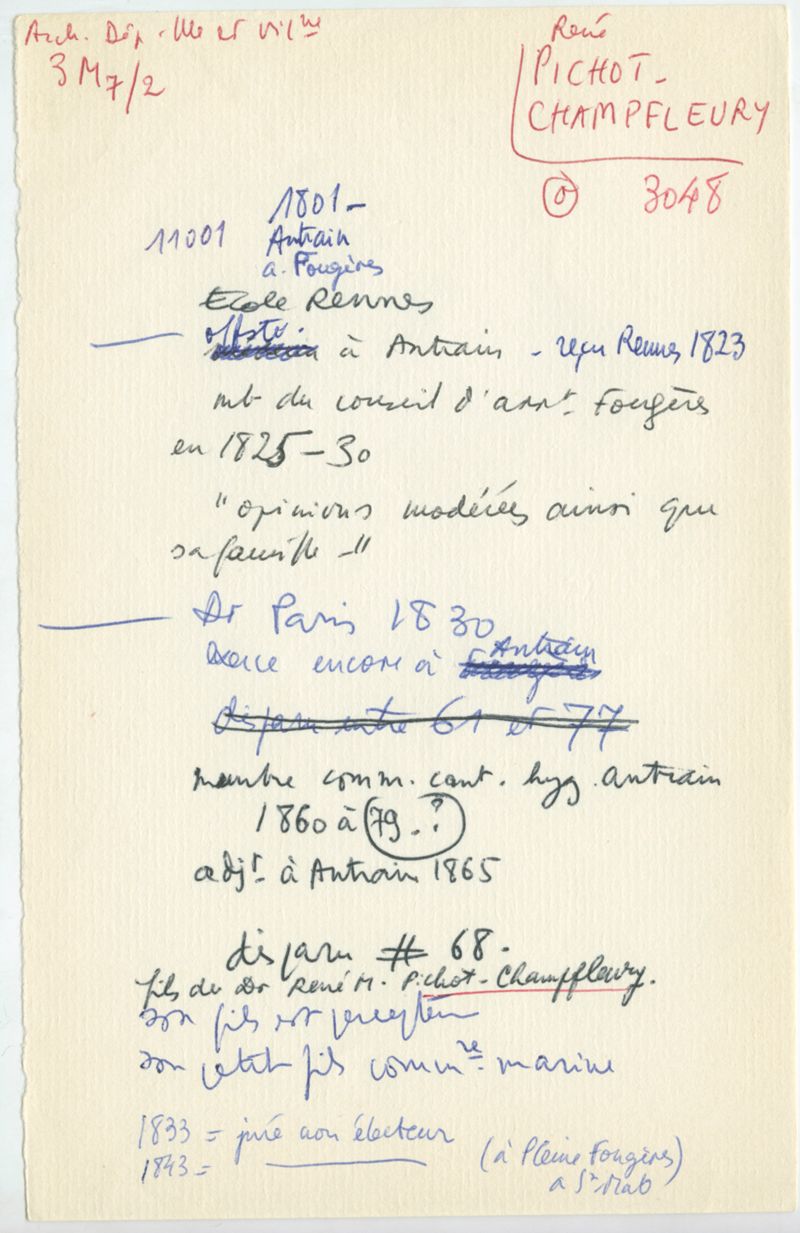 Arch. Dép. Ille et Vilne
3 M 7/2
René
PICHOT-
CHAMPFLEURY
O 3048
1801-
11001 Antrain
a. Fougères
Ecole Rennes
off sté. à Antrain - reçu Rennes 1823
mb du conseil d'arrt Fougères
en 1825-30
"opinions modérées ainsi que
sa famille-"
Dr Paris 1830
exerce encore à Antrain
disparu entre 61 et 77
membre comm. cant. hyg. Antrain
1860 à 79.?
adjt à Antrain 1865
disparu # 68.
fils du Dr René M. Pichot-Champfleury.
son fils est percepteur
son petit fils commre marine
1833 = juré non électeur
1843 = (à Pleine Fougères)
a. St Malo